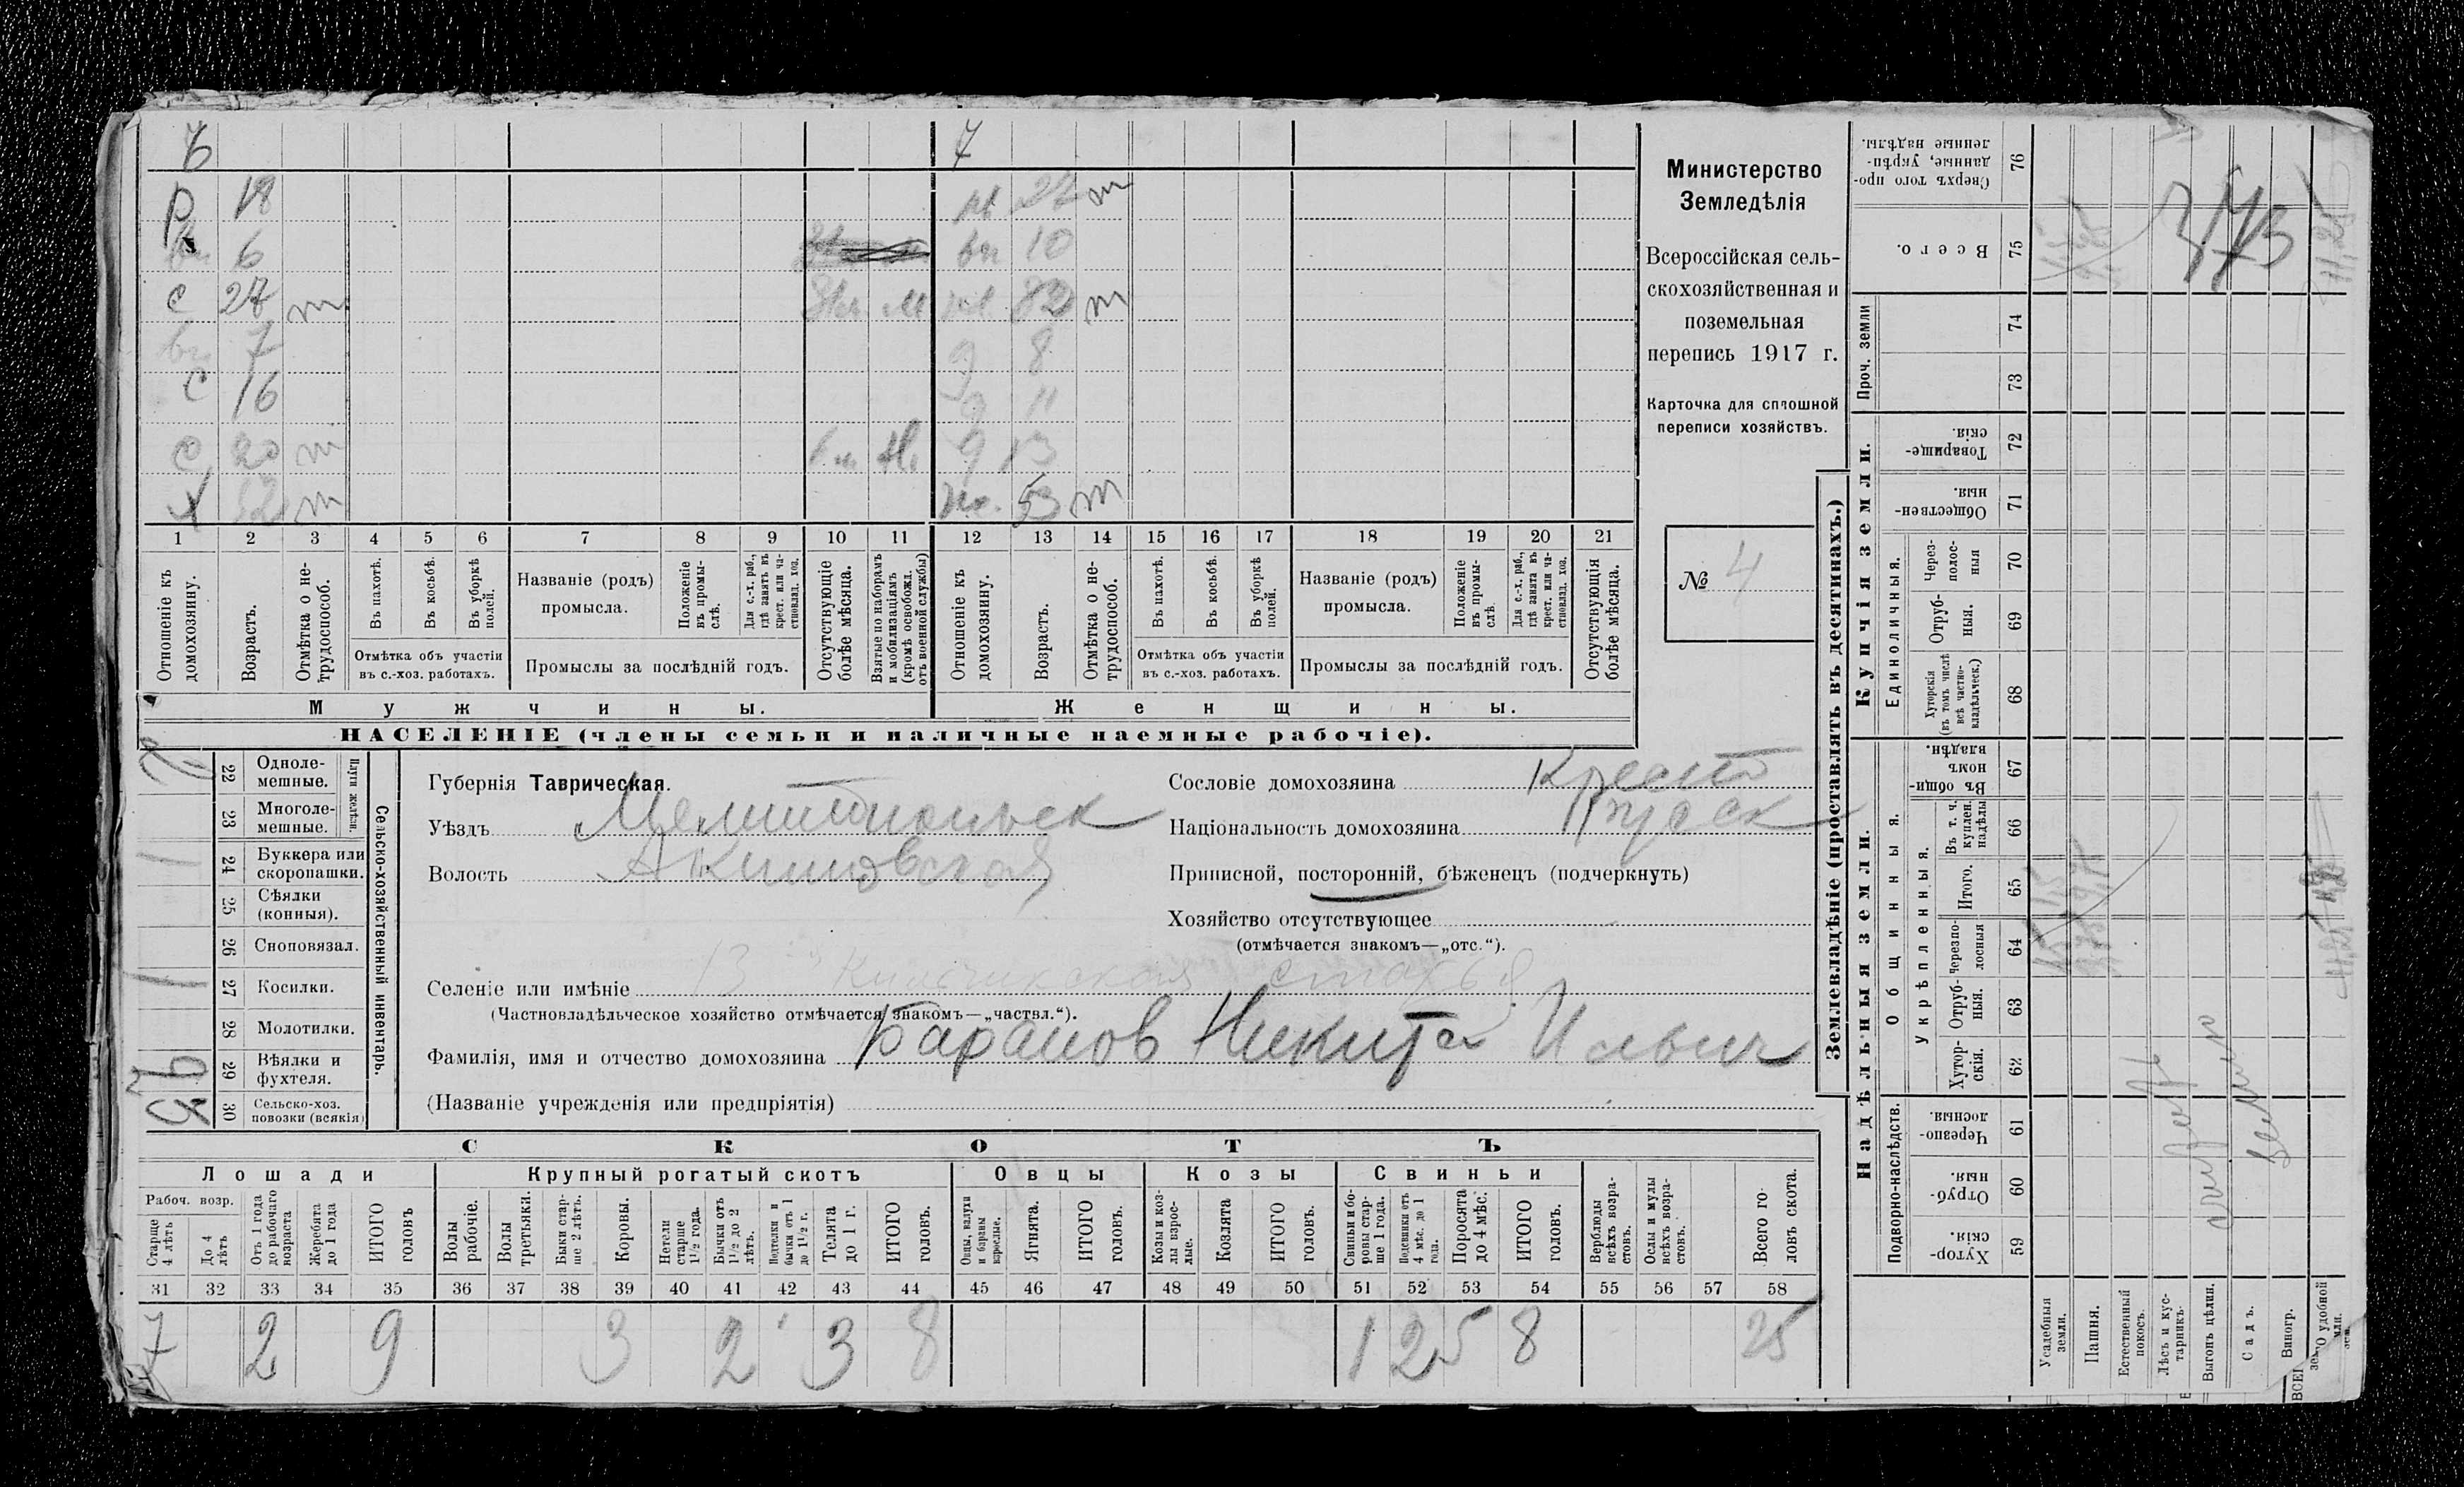 6 7
Р 18 м 22 т
вн 6 вн 10
С 27 т м 32 т
вн 7 д 8
С 16 д 11
С 20 т д 13
Х 52 т ж. 53 т
1 2 3 4 5 6 7 8 9 10 11 12 13 14 15 16 17 18 19 20 21
Отношеніе къ домохозяину.
Возрастъ.
Отмѣтка о нетрудоспособ.
Въ пахотѣ.
Въ косьбѣ.
Въ уборкѣ полей.
Отмѣтка объ участіи
въ с.-хоз. работахъ.
Названіе (родъ)
промысла.
Положеніе въ промыслѣ.
Для с.-х. раб., гдѣ занятъ въ крест. или частновлад. хоз.
Промыслы за послѣдній годъ.
Отсутствующіе болѣе мѣсяца.
Взятые по наборамъ и мобилизаціямъ (кромѣ освобожд. отъ военной службы)
Отношеніе къ домохозяину.
Возрастъ.
Отмѣтка о нетрудоспособ.
Въ пахотѣ.
Въ косьбѣ.
Въ уборкѣ полей.
Отмѣтка объ участіи
въ с.-хоз. работахъ.
Названіе (родъ)
промысла.
Положеніе въ промыслѣ.
Для с.-х. раб., гдѣ занята въ крест. или частновлад. хоз.
Промыслы за послѣдній годъ.
Отсутствующія болѣе мѣсяца.
Мужчины. Женщины.
НАСЕЛЕНІЕ (члены семьи и наличные наемные рабочіе).
Министерство
Земледѣлія
Всероссійская сель-
скохозяйственная и
поземельная
перепись 1917 г.
Карточка для сплошной
переписи хозяйствъ.
№ 4
Сельско-хозяйственный инвентарь.
Плуги желѣзн.
22 Одноле-
мешные.
23 Многоле-
мешные.
24 Буккера или
скоропашки.
25 Сѣялки
(конныя).
26 Сноповязал.
27 Косилки.
28 Молотилки.
29 Вѣялки и
фухтеля.
30 Сельско-хоз.
повозки (всякія)
Губернія Таврическая.
Уѣздъ Мелитопольск
Волость Акимовская
Сословіе домохозяина Крестъ
Національность домохозяина Русск
Приписной, посторонній, бѣженецъ (подчеркнуть)
Хозяйство отсутствующее
(отмѣчается знакомъ—„отс.“).
Селеніе или имѣніе
(Частновладѣльческое хозяйство отмѣчается знакомъ—„частвл.“).
Фамилія, имя и отчество домохозяина Баранов Никита Ильич
(Названіе учрежденія или предпріятія)
СКОТЪ
Лошади Крупный рогатый скотъ Овцы Козы Свиньи
Рабоч. возр.
Старше 4 лѣтъ
До 4 лѣтъ
Отъ 1 года до рабочаго возраста
Жеребята до 1 года
ИТОГО головъ
Волы рабочіе.
Волы третьяки.
Быки старше 2 лѣтъ.
Коровы.
Нетели старше 1½ года.
Бычки отъ 1½ до 2 лѣтъ.
Подтелки и бычки отъ 1 до 1½ г.
Телята до 1 г.
ИТОГО головъ.
Овцы, валухи и бараны взрослые.
Ягнята.
ИТОГО головъ.
Козы и козлы взрослые.
Козлята
ИТОГО головъ.
Свиньи и боровы старше 1 года.
Подсвинки отъ 4 мѣс. до 1 года.
Поросята до 4 мѣс.
ИТОГО головъ.
Верблюды всѣхъ возрастовъ.
Ослы и мулы всѣхъ возрастовъ.
Всего головъ скота.
31 32 33 34 35 36 37 38 39 40 41 42 43 44 45 46 47 48 49 50 51 52 53 54 55 56 57 58
7 2 9 3 2 3 8 1 2 5 8 25
Землевладѣніе (проставлять въ десятинахъ.)
Надѣльныя земли. Купчія земли. Проч. земли
Подворно-наслѣдств.
Общинныя.
Укрѣпленныя.
Единоличныя.
Хуторскія. 59
Отрубныя. 60
Черезполосныя. 61
Хуторскія. 62
Отрубныя. 63
Черезполосныя 64
Итого. 65
Въ т. ч. куплен. надѣлы 66
Въ общиномъ владѣн. 67
Хуторскія (въ томъ числѣ всѣ частновладѣльческ.) 68
Отрубныя. 69
Черезполосныя 70
Общественныя. 71
Товарищескія. 72
73
74
Всего. 75
Сверхъ того проданные, укрѣпленные надѣлы. 76
Усадебныя земли.
Пашня.
Естественный покосъ.
Лѣсъ и кустарникъ.
Выгонъ цѣлин.
Садъ.
Виногр.